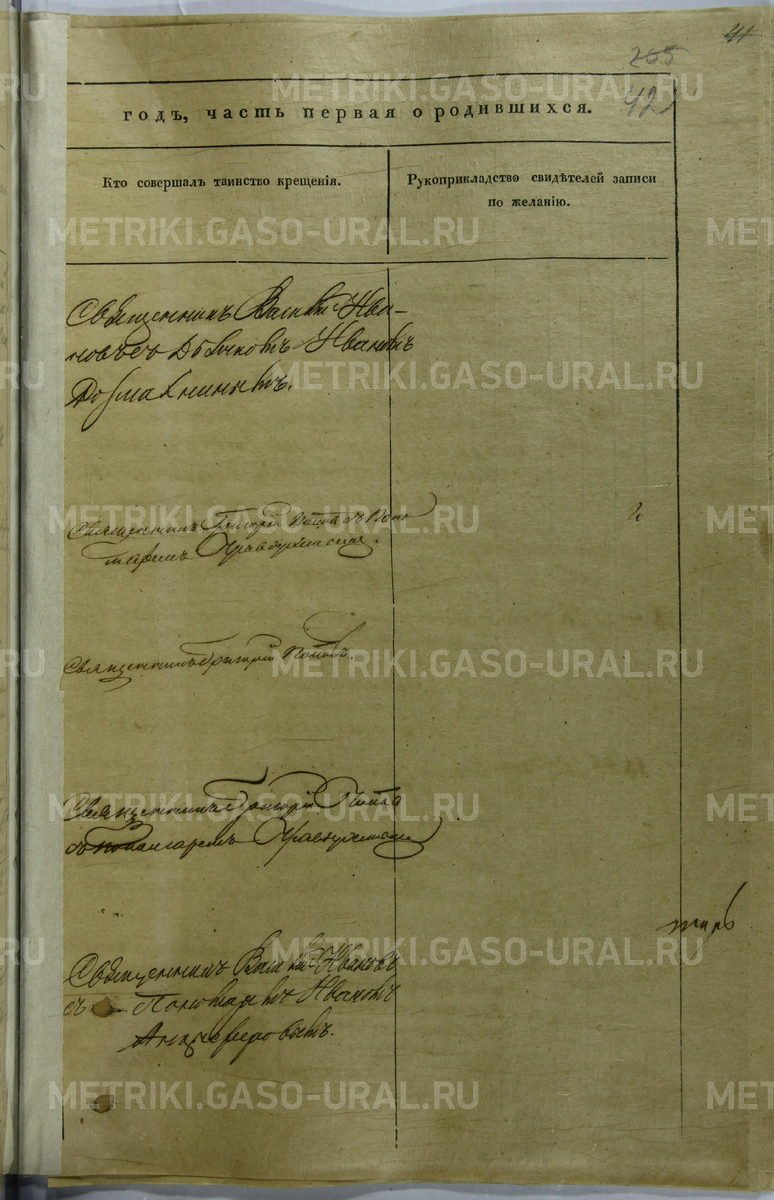 41
265
42
годъ, часть первая о родившихся.
Кто совершалъ таинство крещенія.
Рукоприкладство свидѣтелей записи
по желанію.
Священникъ Василій Ива-
новъ съ Дьячкомъ Иваномъ
Священникъ Григорій Поповъ съ Поно
маремъ
Священникъ Григорій Поповъ.
Священникъ Григорій Поповъ
съ Пономаремъ
Священникъ Василій Ивановъ
съ Пономаремъ Иваномъ
METRIKI.GASO-URAL.RU